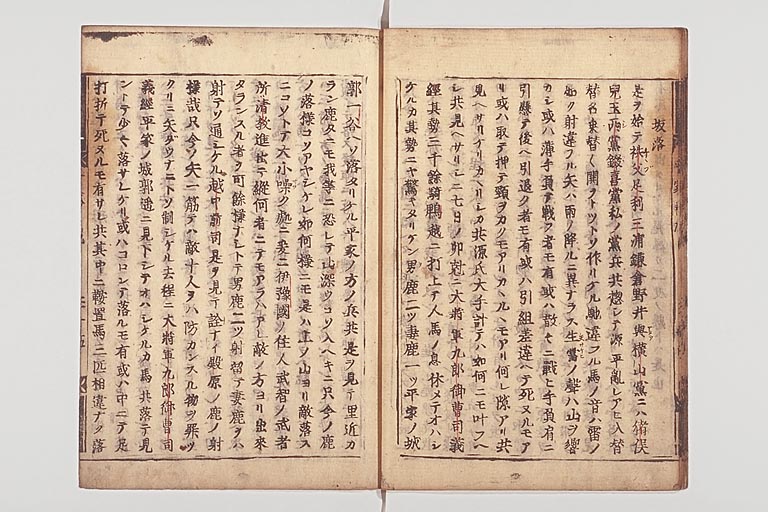 坂落
是ヲ始テ秩父足利三浦鎌倉野井與横山黨ニハ猪俣
兒玉西黨綴喜黨私ノ黨兵共惣シテ源平亂レアヒ入替
替名乗替く関ヲトツトソ作リケル馳違フル馬ノ音ハ雷ノ
如ク射違フル矢ハ雨ノ降ルニ異ナラス
カシ或ハ薄手負テ戰フ者モ有或ハ散々ニ戰ヒ手負有ニ
引懸テ後ヘ引退ク者モ有或ハ引組差違ヘテ死ヌルモア
リ或ハ取テ押テ頸ヲカクモアリカヽルヽモアリ何レ隙アリ共
見ヘサリケリカヽリシカ共源氏大手計テハ如何ニモ叶フヘ
シ共見ヘサリシニ七日ノ卯尅ニ大將軍九郎御曹司義
經其勢三千餘騎鵯越ニ打上テ人馬ノ息休メテオハシ
ケルカ其勢ニヤ驚キタリケン男鹿二ツ妻鹿一ツ平家ノ城
郭一谷ヘソ落タリケル平家ノ方ノ兵共是ヲ見テ里近カ
ラン鹿タニモ我等ニ恐レテ山深ウコソ入ヘキニ只今ノ鹿
ノ落樣コソアヤシケレ如何樣ニモ是ハ上ノ山ヨリ敵落ス
ニコソトテ大小噪ク處ニ爰ニ伊豫國ノ住人武智ノ武者
所清教進出テ縱何者ニテモアラハアレ敵ノ方ヨリ出來
タランスル者ヲ可餘樣ナシトテ男鹿二ツ射留テ妻鹿ヲハ
射テソ通シケル越中前司是ヲ見テ詮ナキ殿原ノ鹿ノ射
樣哉只今ノ矢一筋テハ敵十人ヲハ防カンスル物ヲ罪ツ
クリニ矢タウナニトソ制シケル去程ニ大將軍九郎御曹司
義經平家ノ城郭遥ニ見下シテオハシケルカ馬共落テ見
ントテ少々落サレケリ或ハコロンテ落ルモ有或ハ中ニテ足
打折テ死ヌルモ有サレ共其中ニ鞍置馬二匹相違ナク落